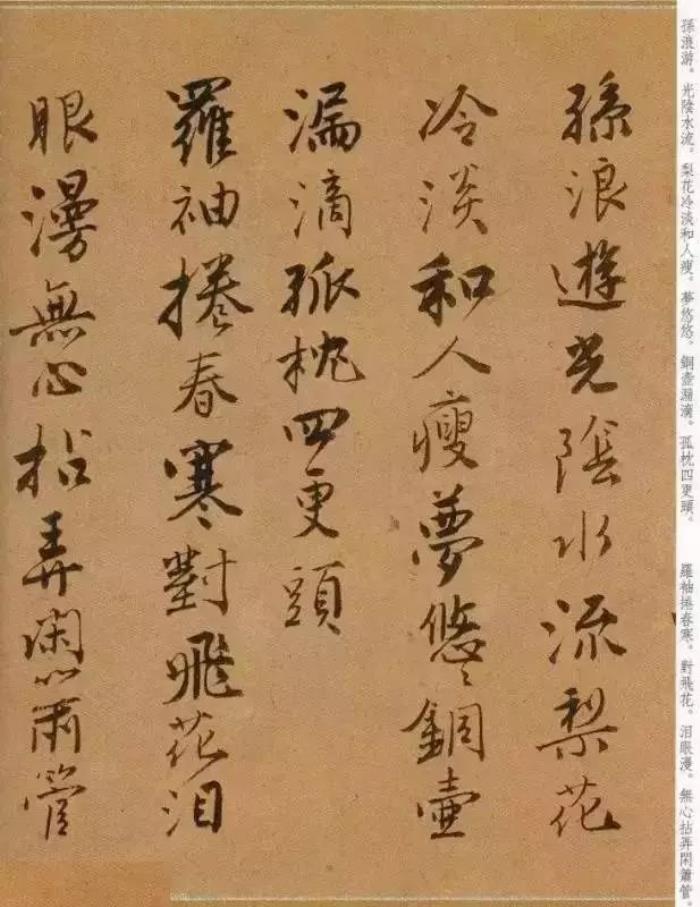 孫浪遊光陰水流梨花
冷淡和人瘦夢悠〻銅壺
漏滴孤枕四更頭
羅袖捲春寒對飛花泪
眼漫無心拈弄閑簫管
孫浪游。光陰水流。梨花冷淡和人瘦。夢悠悠。銅壺漏滴。孤枕四更頭。
羅袖捲春寒。對飛花。泪眼漫。無心拈弄閑簫管。